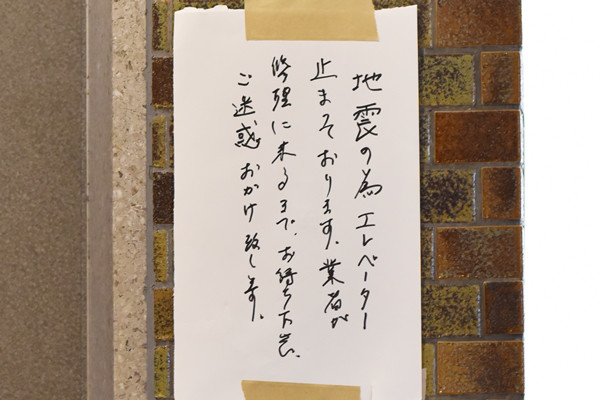 地震の為エレベーター
止まっております。業者が
修理に来るまで、お待ち下さい。
ご迷惑おかけ致します。